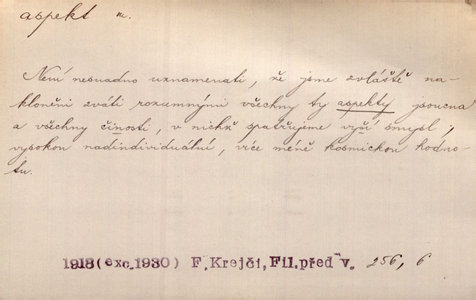 aspekt m.
Není nesnadno uznamenati, že jsme zvláště na-
kloněni zváti rozumnými všechny ty aspekty jsoucna
a všechny činosti, v nichž spatřujeme vyší smysl,
vysokou nadindividuální, více méně kosmickou hodno-
tu.
1918 (exc. 1930) F. Krejčí, Fil. před v. 256, 6